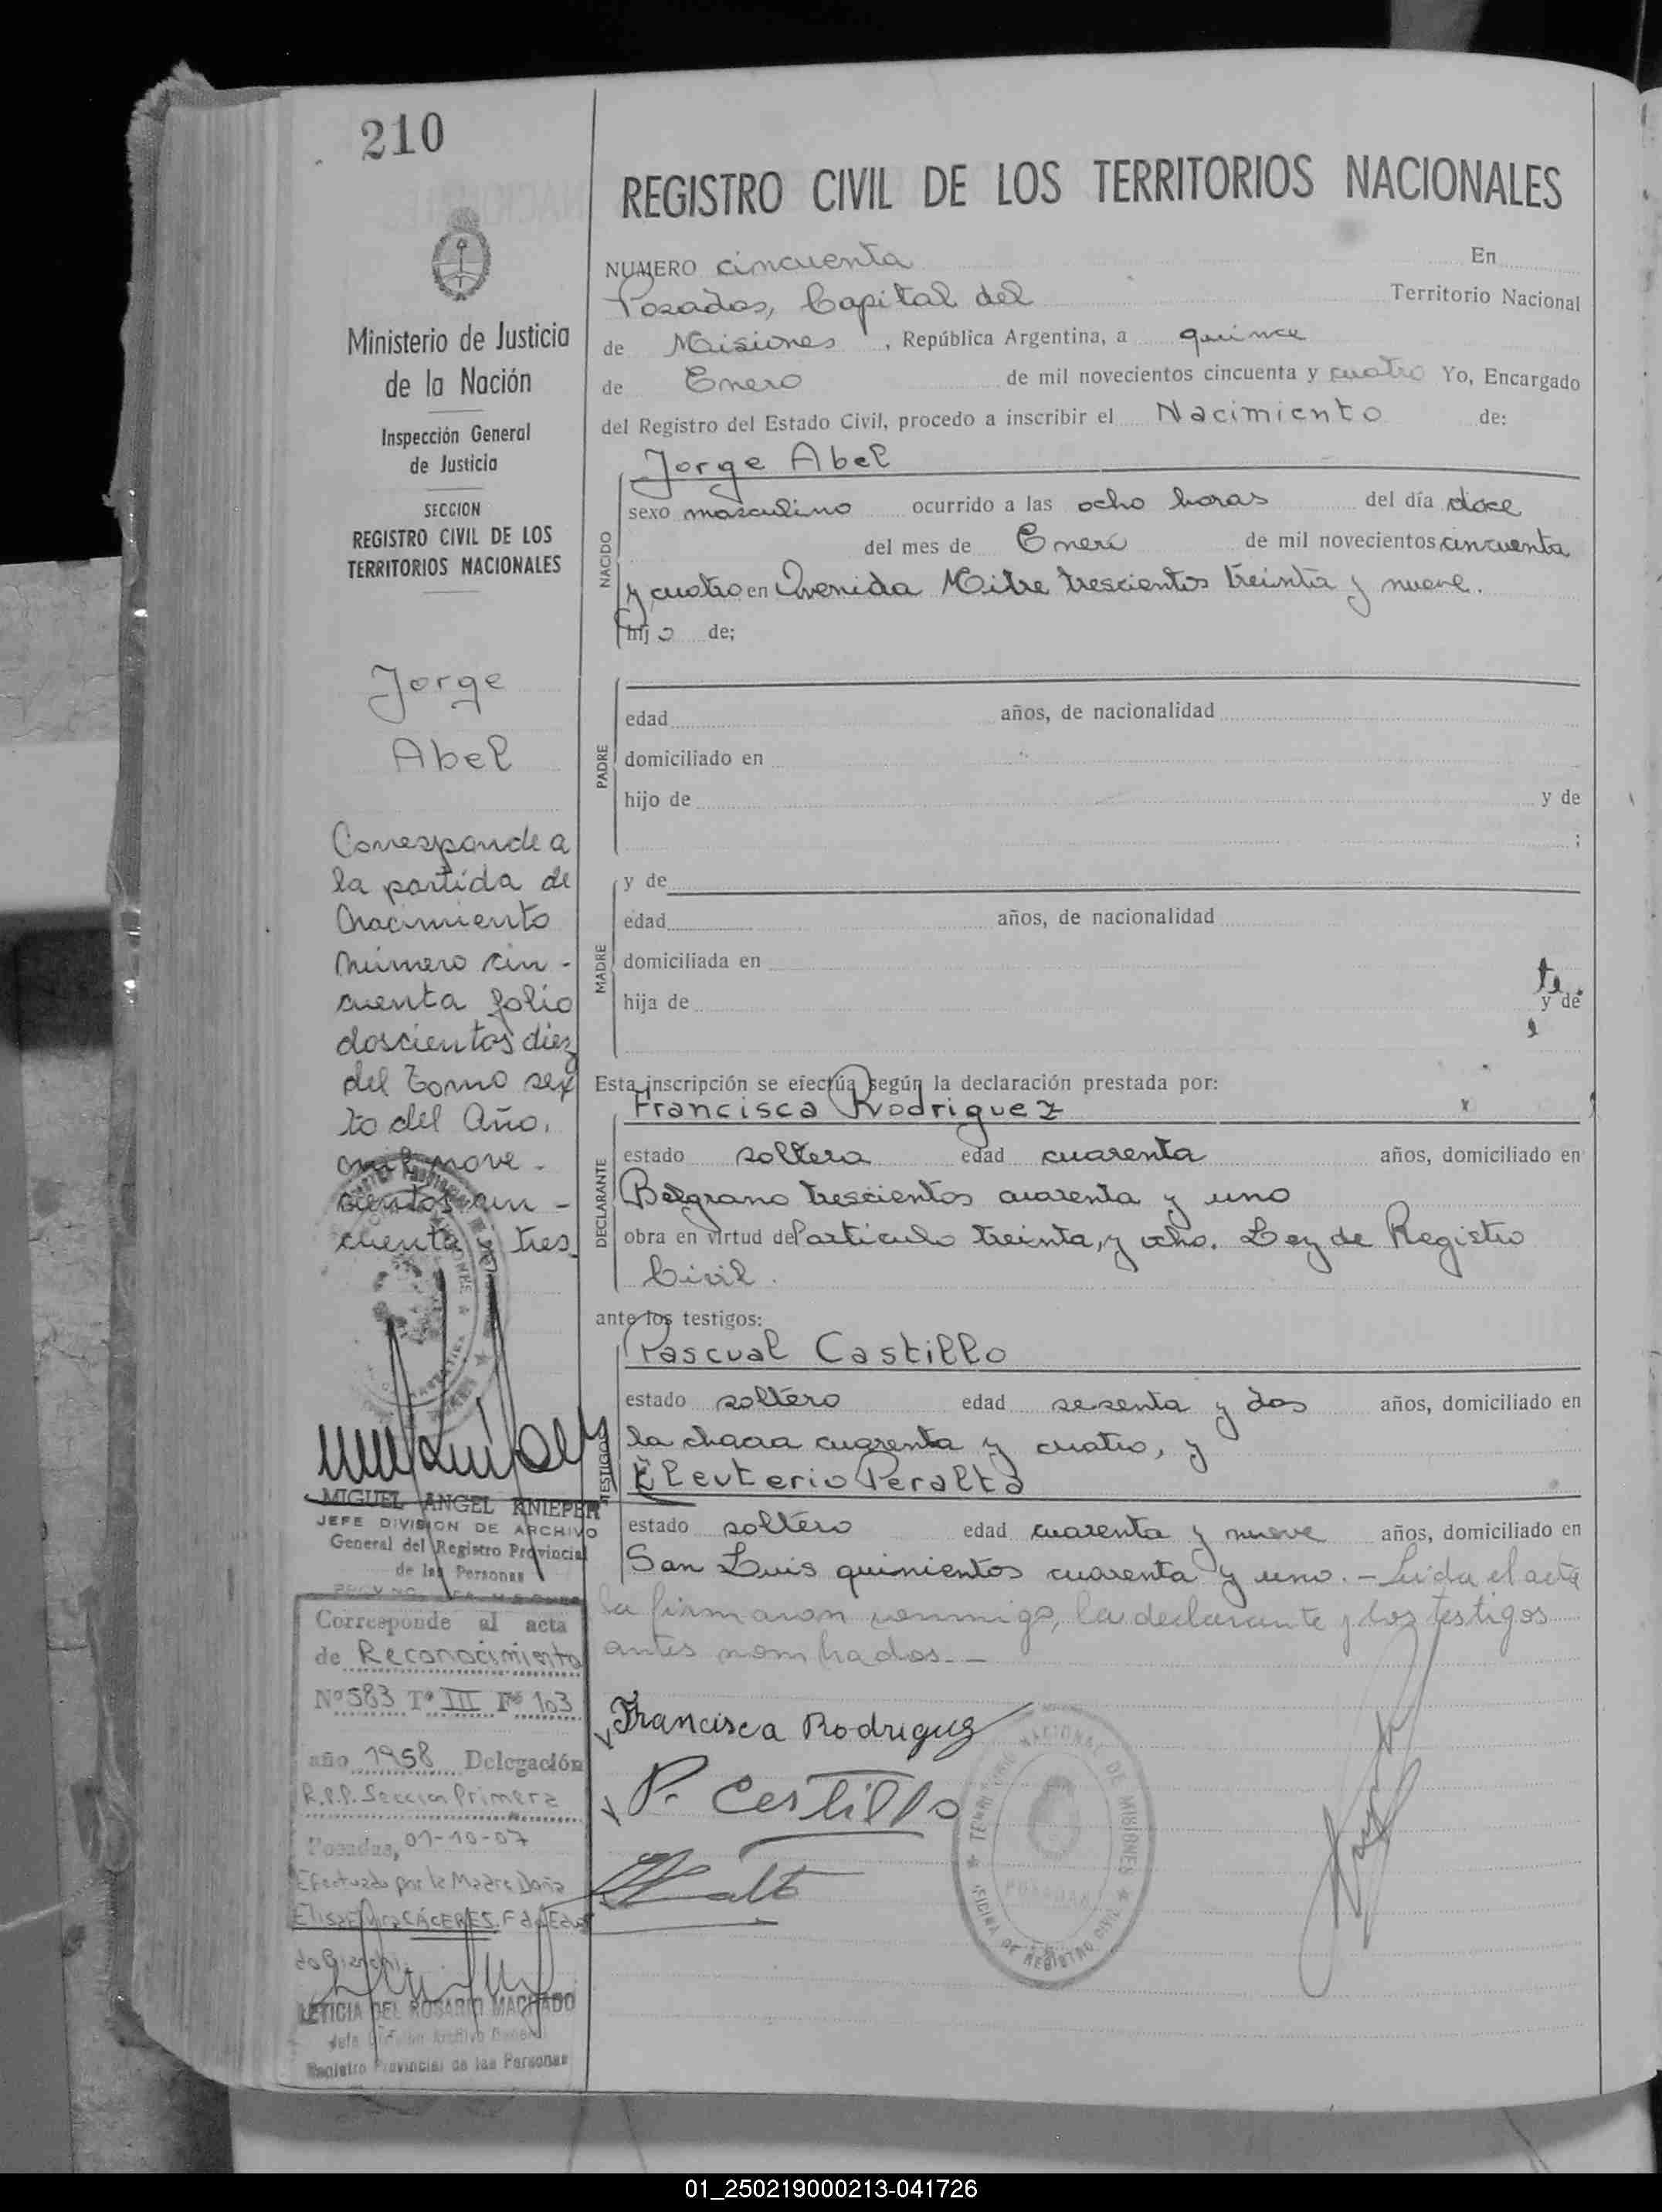 210
Ministerio de Justicia
de la Nación
Inspección General
de Justicia
SECCION
REGISTRO CIVIL DE LOS
TERRITORIOS NACIONALES
Jorge
Abel
Corresponde a
la partida de
Nacimiento
Número cin-
cuenta folio
doscientos diez
del Tomo sex
to del Año,
mil nove-
cientos cin-
cuenta y tres
MIGUEL ANGEL KNIEPER
JEFE DIVISION DE ARCHIVO
General del Registro Provincial
de las Personas
Corresponde al acta
de Reconocimiento
Nº 583 Tº III Fº 103
año 1958 Delegación
R.P.P. Sección Primera
Posadas, 01-10-07
Efectuado por la Madre Doña
CÁCERES. Fdo Edu
do Bianchi.
LETICIA DEL ROSARIO MACHADO
Registro Provincial de las Personas
REGISTRO CIVIL DE LOS TERRITORIOS NACIONALES
NUMERO cincuenta En
Posadas, Capital del Territorio Nacional
de Misiones, República Argentina, a quince
de Enero de mil novecientos cincuenta y cuatro Yo, Encargado
del Registro del Estado Civil, procedo a inscribir el Nacimiento de:
Jorge Abel
NACIDO
sexo masculino ocurrido a las ocho horas del día doce
del mes de Enero de mil novecientos cincuenta
y cuatro en Avenida Mitre trescientos treinta y nueve.
hijo de;
PADRE
edad años, de nacionalidad
domiciliado en
hijo de y de
;
MADRE
y de
edad años, de nacionalidad
domiciliada en
te.
hija de y de
Esta inscripción se efectúa según la declaración prestada por:
Francisca Rodriguez
DECLARANTE
estado soltera edad cuarenta años, domiciliado en
Belgrano trescientos cuarenta y uno
obra en virtud del articulo treinta, y ocho. Ley de Registro
Civil.
ante los testigos:
Pascual Castillo
TESTIGOS
estado soltero edad sesenta y dos años, domiciliado en
la chacra cuarenta y cuatro, y
Eleuterio Peralta
estado soltero edad cuarenta y nueve años, domiciliado en
San Luis quinientos cuarenta y uno. - Leida el acta
la firmaron conmigo, la declarante y los testigos
antes nombrados. -
Francisca Rodriguez
P. Castillo
TERRITORIO NACIONAL DE MISIONES
POSADAS
OFICINA DE REGISTRO CIVIL
01_250219000213-041726